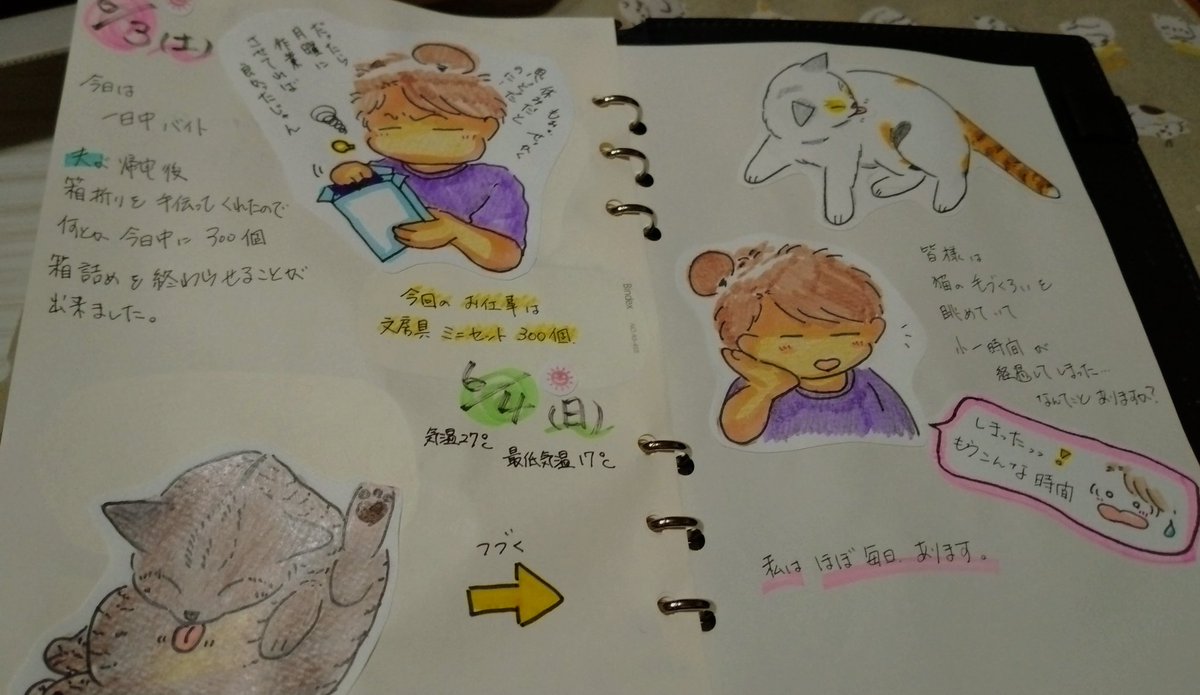 6/3(土)
今日は
一日中 バイト
夫が 帰宅後
箱折りを 手伝ってくれたので
何とか 今日中に 300個
箱詰めを 終わらせることが
出来ました。
今回の お仕事は
文房具 ミニセット 300個
6/4(日)
気温27℃
最低気温17℃
つづく
Bindex
皆様は
猫の 毛づくろいを
眺めていて
小一時間 が
経過してしまった…
なんてこと ありますか?
しまった。。。!
もうこんな 時間
私は ほぼ 毎日 あります。